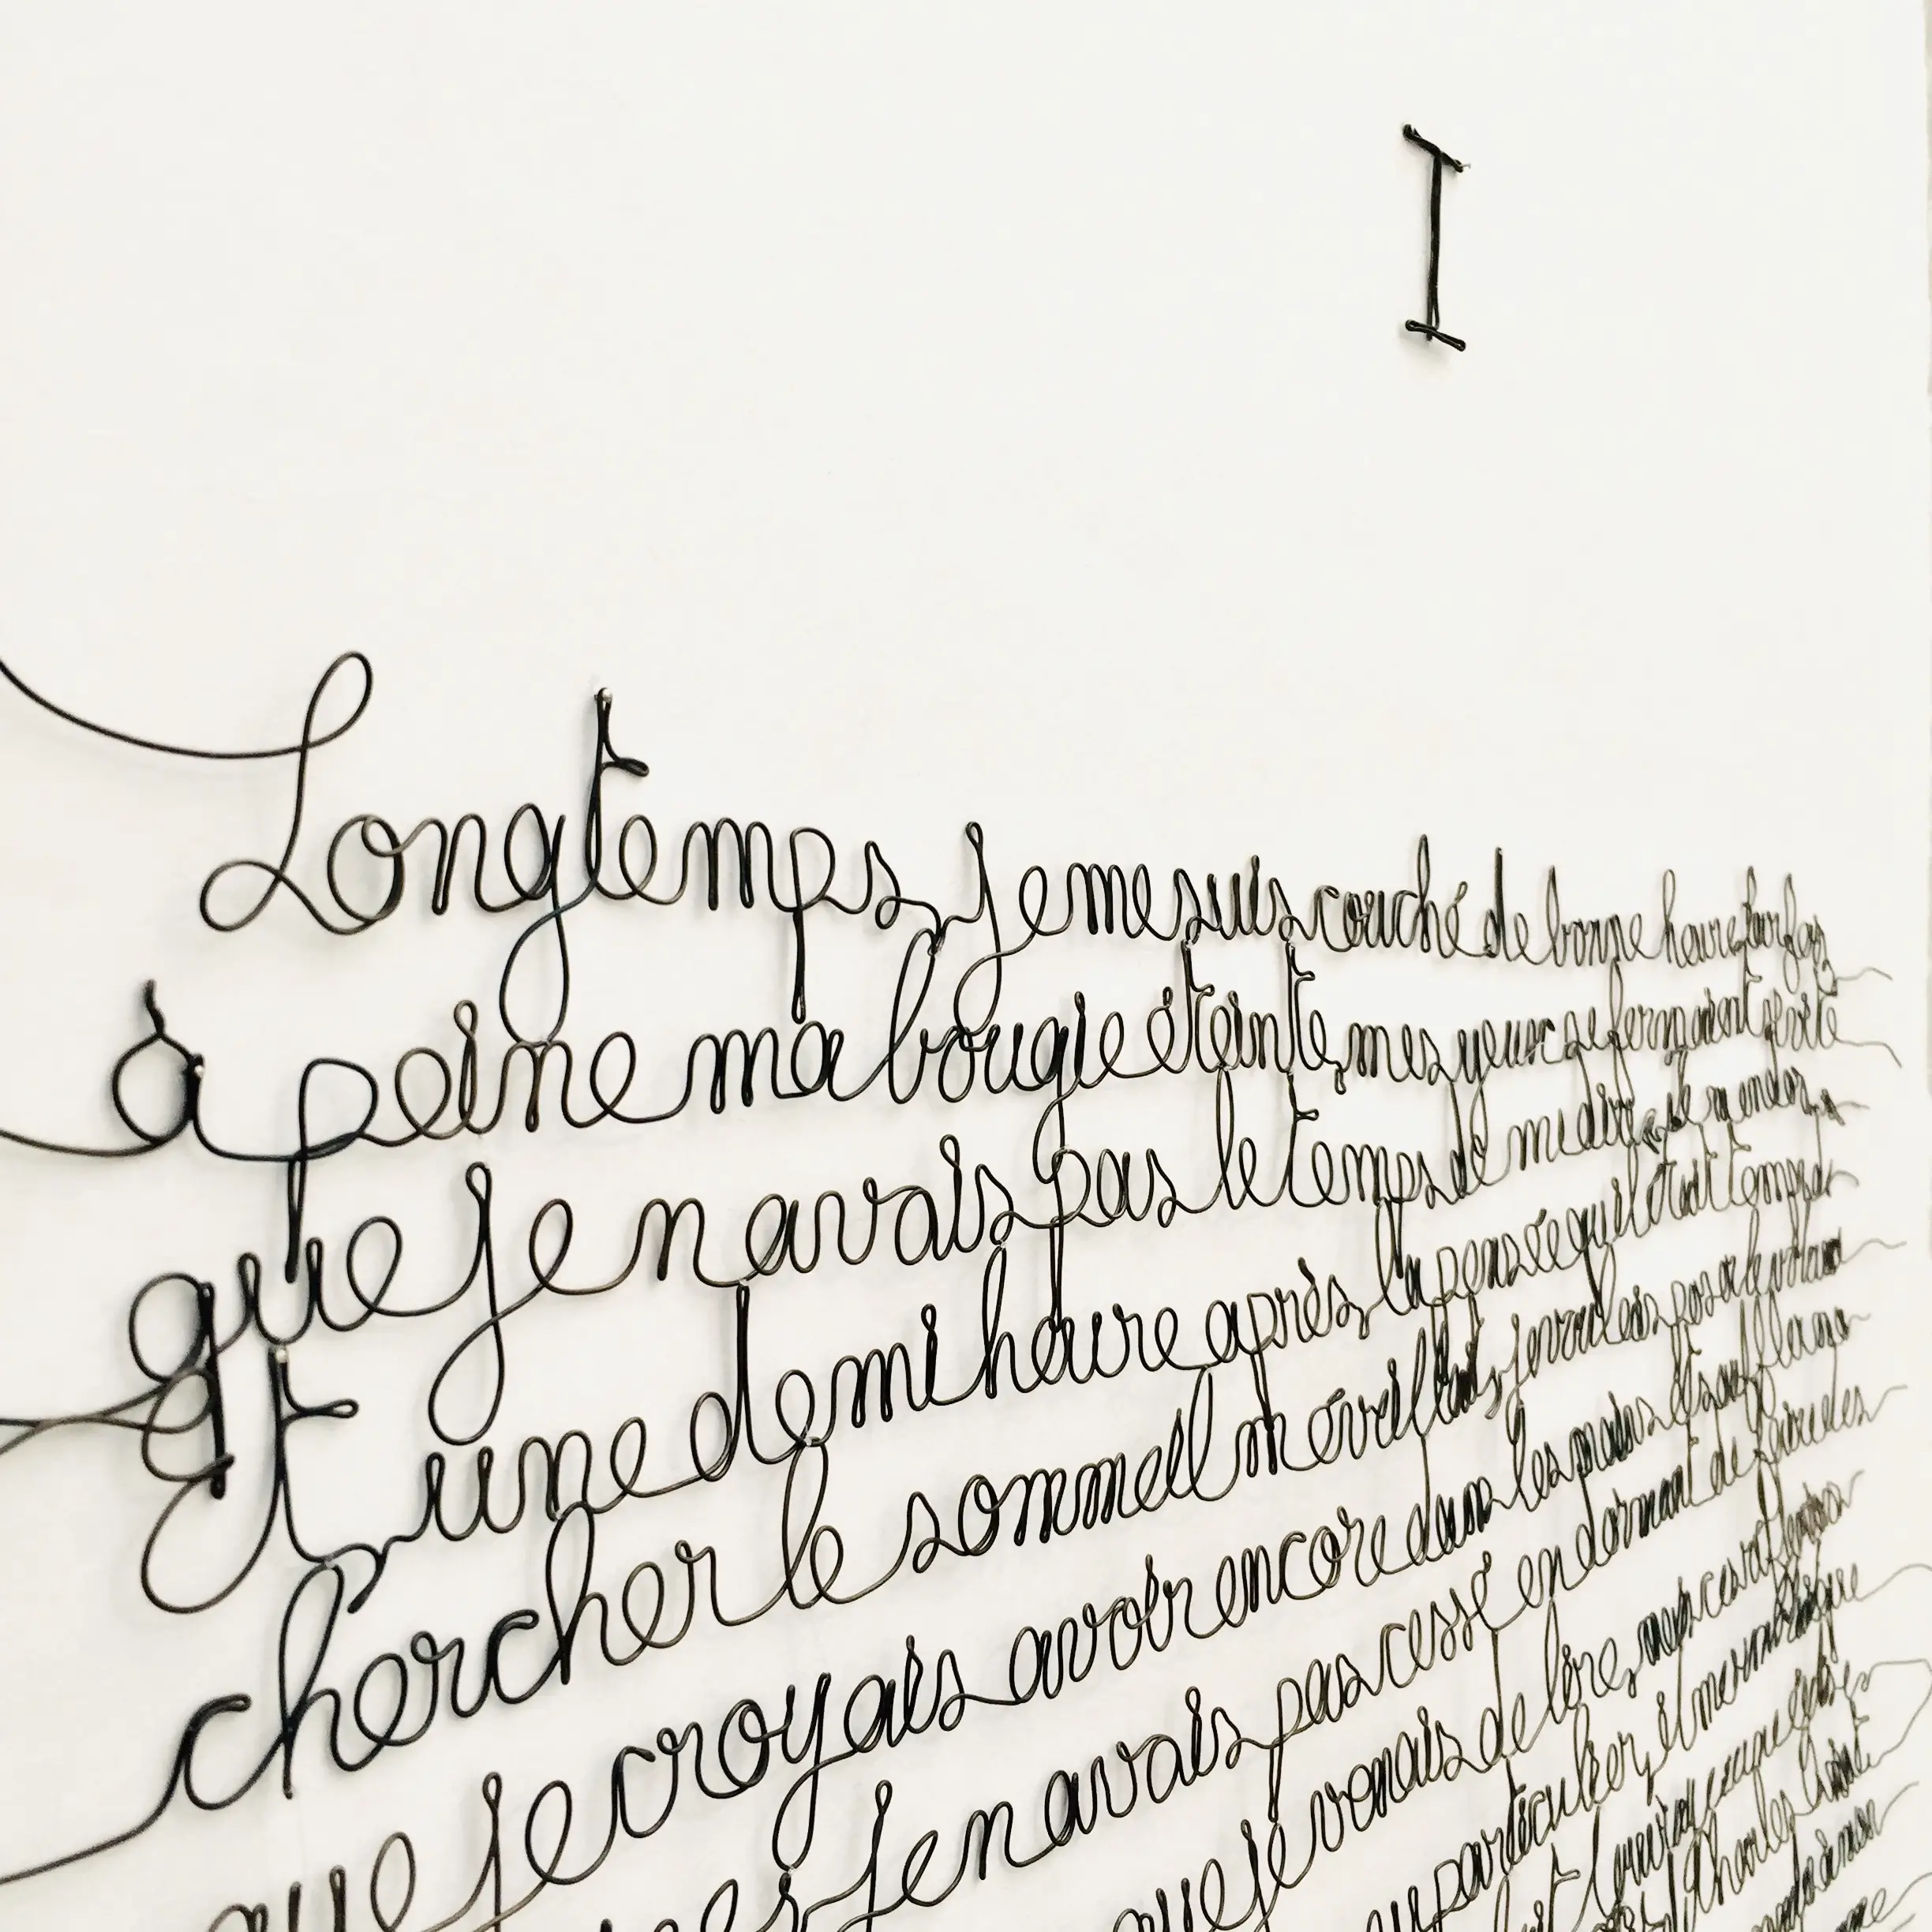 I
Longtemps, je me suis couché de bonne heure. Parfois,
à peine ma bougie éteinte, mes yeux se fermaient si vite
que je n avais pas le temps de me dire je m endors
Et, une demi heure après, la pensée qu il était temps de
chercher le sommeil m éveillait, je voulais poser le volume
que je croyais avoir encore dans les mains et souffler ma
je n avais pas cessé en dormant de faire des
que je venais de lire, mais ces réflexions
particulier, il me semblait que
une église
Charles Quint